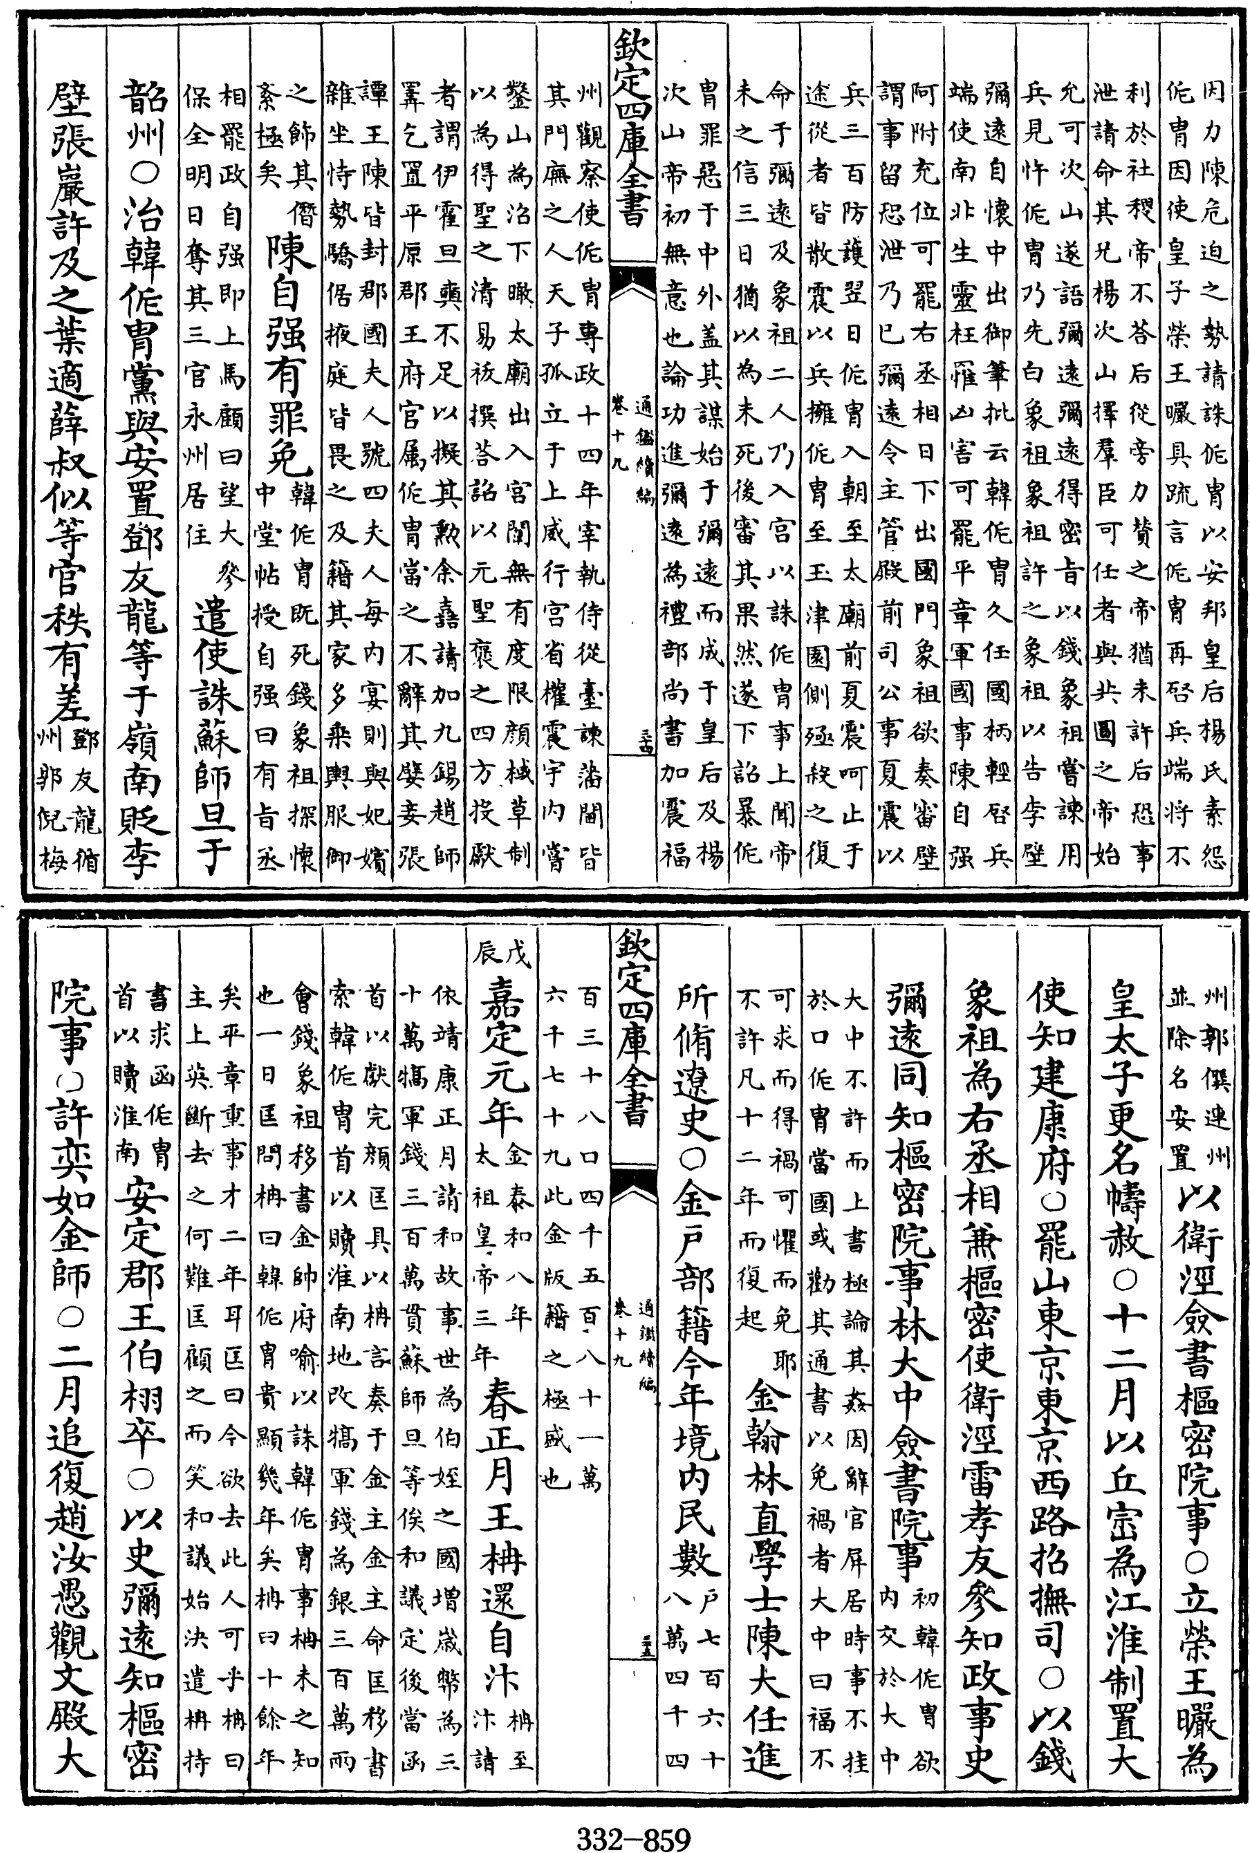 因力陳危迫之勢請誅侂胄以安邦皇后楊氏素怨
侂胄因使皇子榮王曮具疏言侂胄再啓兵端將不
利於社稷帝不荅后從旁力贊之帝猶未許后恐事
泄請命其兄楊次山擇羣臣可任者與共圖之帝始
允可次山遂語彌遠彌遠得密旨以錢象祖嘗諫用
兵見忤侂胄乃先白象祖象祖許之象祖以告李壁
彌遠自懷中出御筆批云韓侂胄久任國柄輕啓兵
端使南北生靈枉罹凶害可罷平章軍國事陳自强
阿附充位可罷右丞相日下出國門象祖欲奏審壁
謂事留恐泄乃已彌遠令主管殿前司公事夏震以
兵三百防護翌日侂胄入朝至太廟前夏震呵止于
途從者皆散震以兵擁侂胄至玉津園側殛殺之復
命于彌遠及象祖二人乃入宫以誅侂胄事上聞帝
未之信三日猶以為未死後審其果然遂下詔暴侂
胄罪惡于中外盖其謀始于彌遠而成于皇后及楊
次山帝初無意也論功進彌遠為禮部尚書加震福
欽定四庫全書
通鑑續編
卷十九
二十四
州觀察使侂胄專政十四年宰執侍從臺諫藩閫皆
其門廡之人天子孤立于上威行宫省權震宇内嘗
鑿山為沼下瞰太廟出入宫闈無有度限顔棫草制
以為得聖之清易祓撰荅詔以元聖褒之四方投獻
者謂伊霍旦奭不足以擬其勲余嚞請加九錫趙師
𢍰乞置平原郡王府官属侂胄當之不辭其嬖妾張
譚王陳皆封郡國夫人號四夫人每内宴則與妃嬪
雜坐恃勢驕倨掖庭皆畏之及籍其家多乘輿服御
之飾其僭
紊極矣
陳自强有罪免
韓侂胄既死錢象祖探懐
中堂帖授自强曰有旨丞
相罷政自强即上馬顧曰望大參
保全明日奪其三官永州居住
遣使誅蘇師旦于
韶州○治韓侂胄黨與安置鄧友龍等于嶺南貶李
壁張巖許及之葉適薛叔似等官秩有差
鄧友龍循
州郭倪梅
州郭僎連州
並除名安置
以衛涇僉書樞密院事○立榮王曮為
皇太子更名幬赦○十二月以丘崈為江淮制置大
使知建康府○罷山東京東京西路招撫司○以錢
象祖為右丞相兼樞密使衛涇雷孝友參知政事史
彌遠同知樞密院事林大中僉書院事
初韓侂胄欲
内交於大中
大中不許而上書極論其姦因辭官屏居時事不挂
於口侂胄當國或勸其通書以免禍者大中曰福不
可求而得禍可懼而免耶
不許凡十二年而復起
金翰林直學士陳大任進
所脩遼史○金戸部籍今年境内民數
戸七百六十
八萬四千四
欽定四庫全書
通鑑續編
卷十九
二十五
百三十八口四千五百八十一萬
六千七十九此金版籍之極盛也
戊
辰
嘉定元年
金泰和八年
太祖皇帝三年
春正月王柟還自汴
柟至
汴請
依靖康正月請和故事世為伯姪之國增歲幣為三
十萬犒軍錢三百萬貫蘇師旦等俟和議定後當函
首以獻完顔匡具以柟言奏于金主金主命匡移書
索韓侂胄首以贖淮南地改犒軍錢為銀三百萬兩
會錢象祖移書金帥府喻以誅韓侂胄事柟未之知
也一日匡問柟曰韓侂胄貴顯幾年矣柟曰十餘年
矣平章重事才二年耳匡曰今欲去此人可乎柟曰
主上英斷去之何難匡顧之而笑和議始決遣柟持
書求函侂胄
首以贖淮南
安定郡王伯栩卒○以史彌遠知樞密
院事○許奕如金師○二月追復趙汝愚觀文殿大
332-859